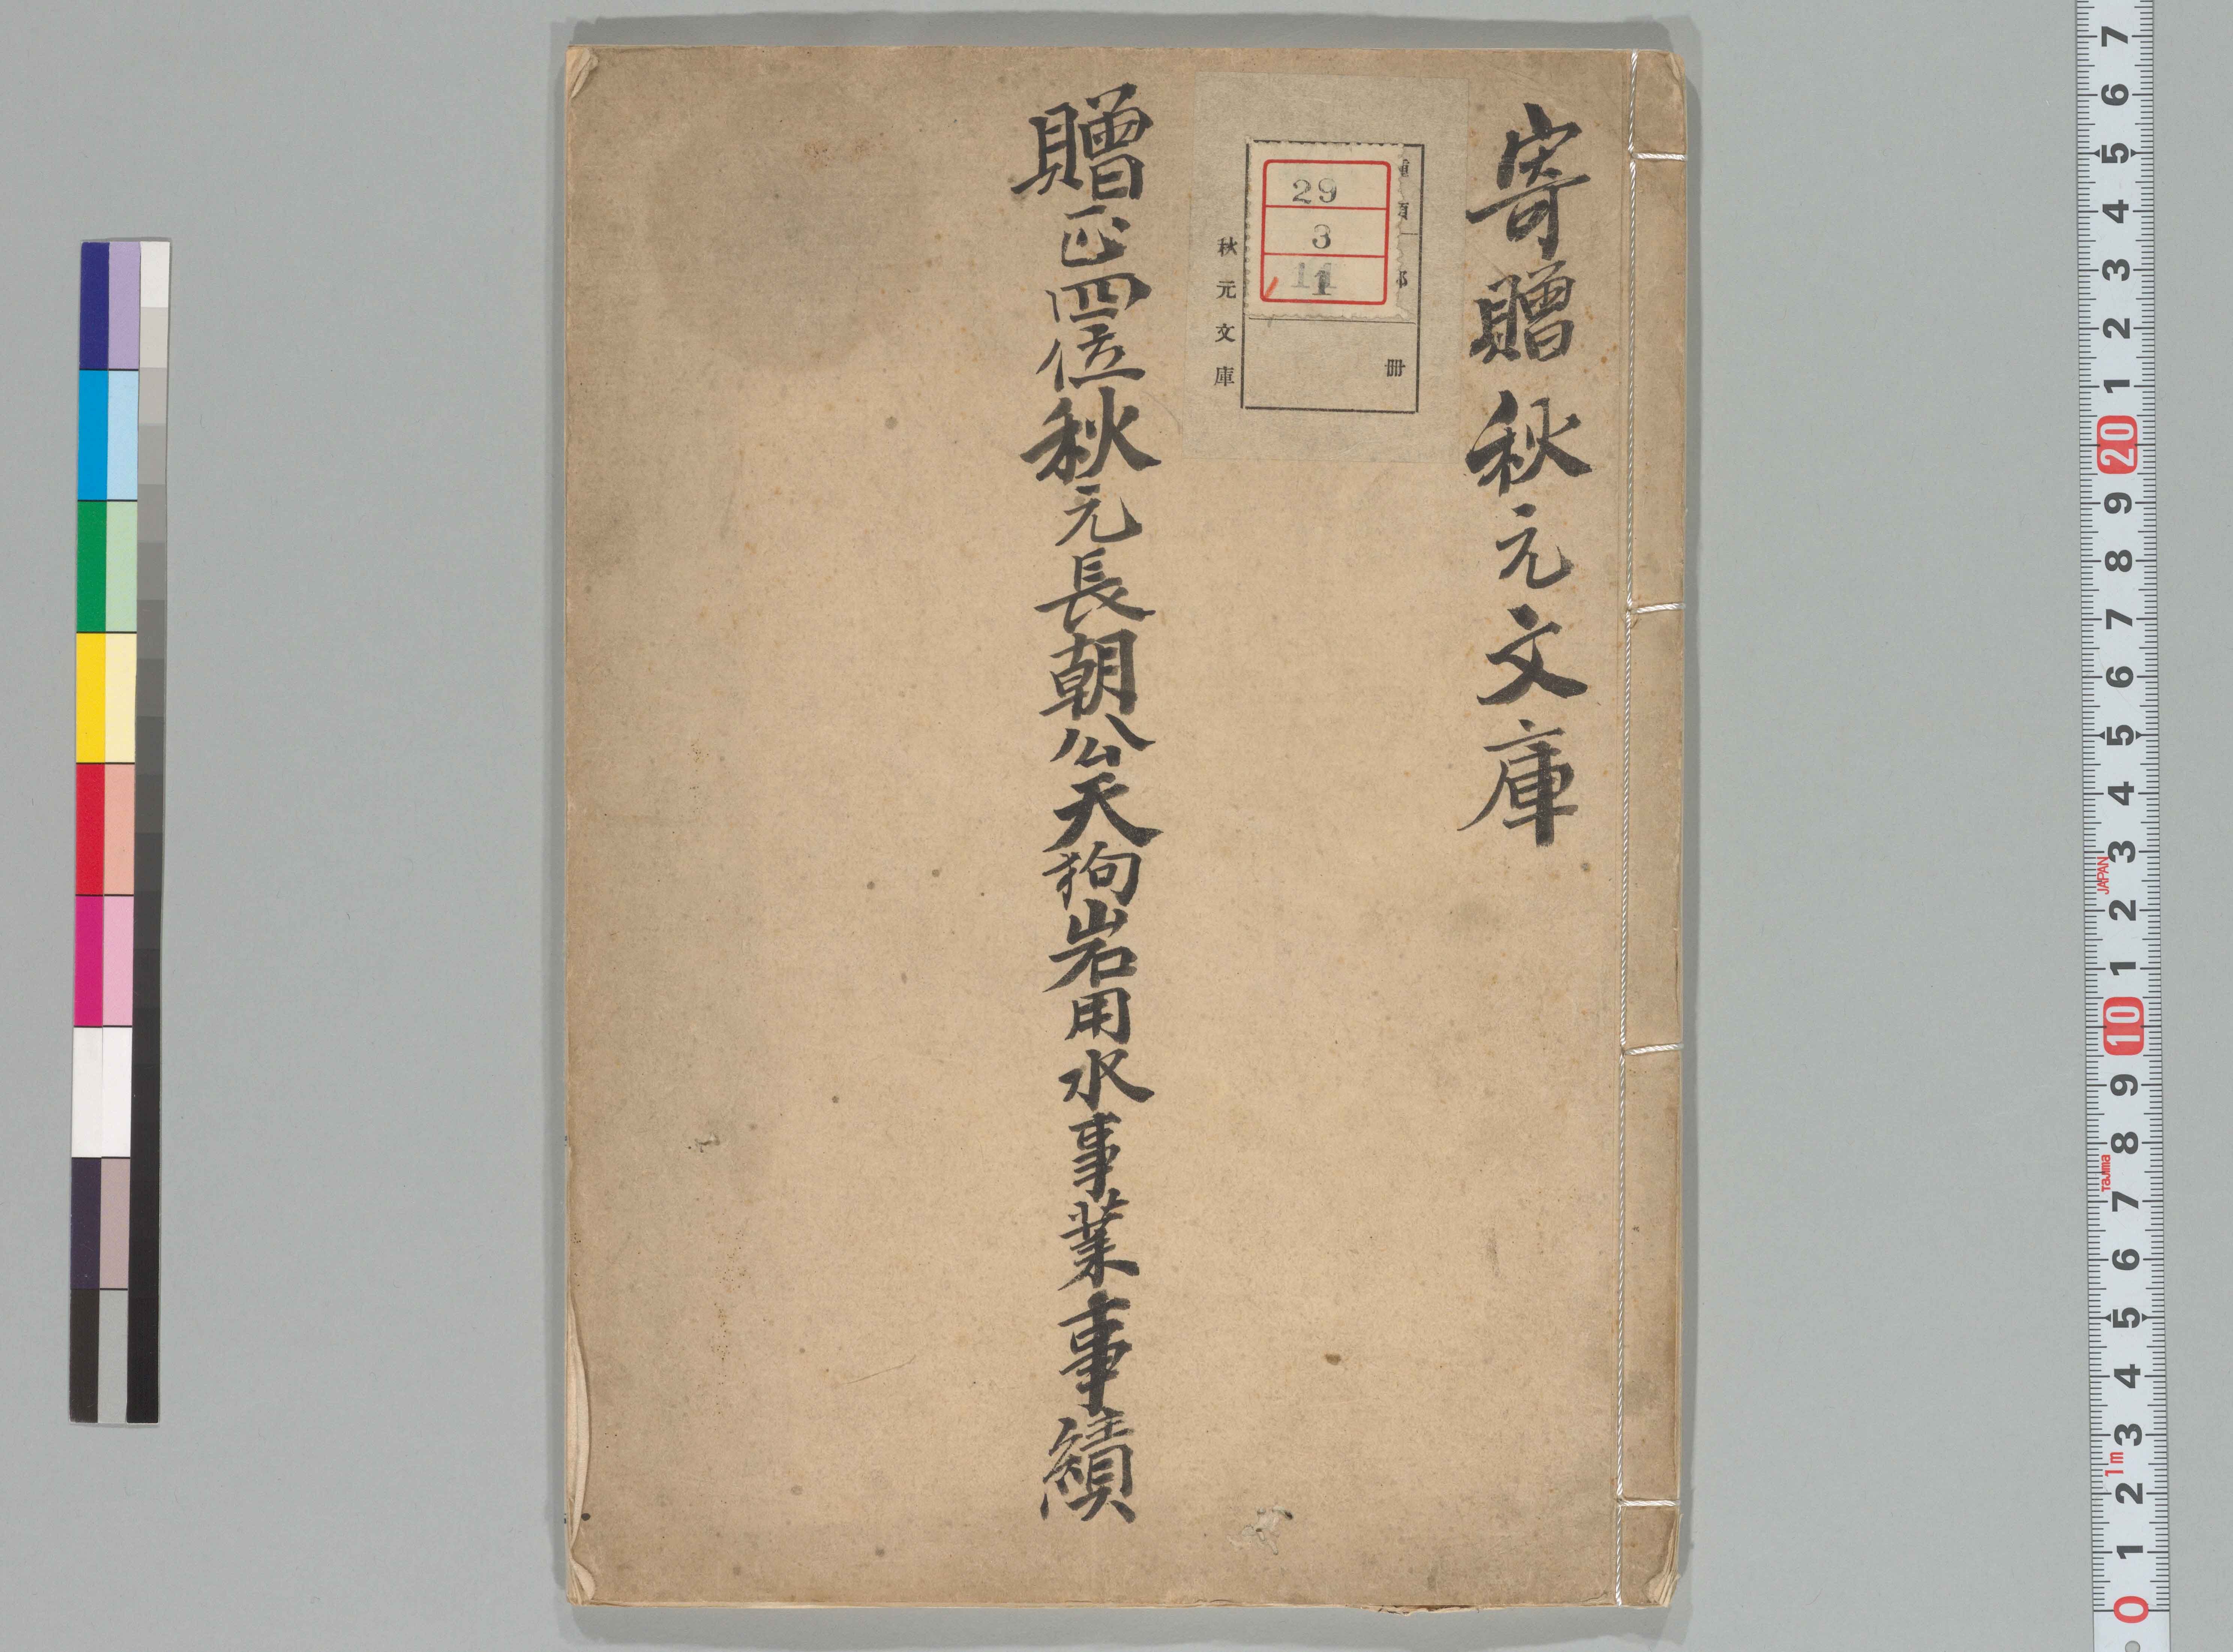 寄贈秋元文庫
冊
29
3
1
秋元文庫
贈正四位秋元長朝公天狗岩用水事業事績
7
6
5
4
3
2
1
20
9
8
7
6
5
4
3
JAPAN
2
1
10
9
8
Tajima
7
6
5
4
3
1m
2
1
0